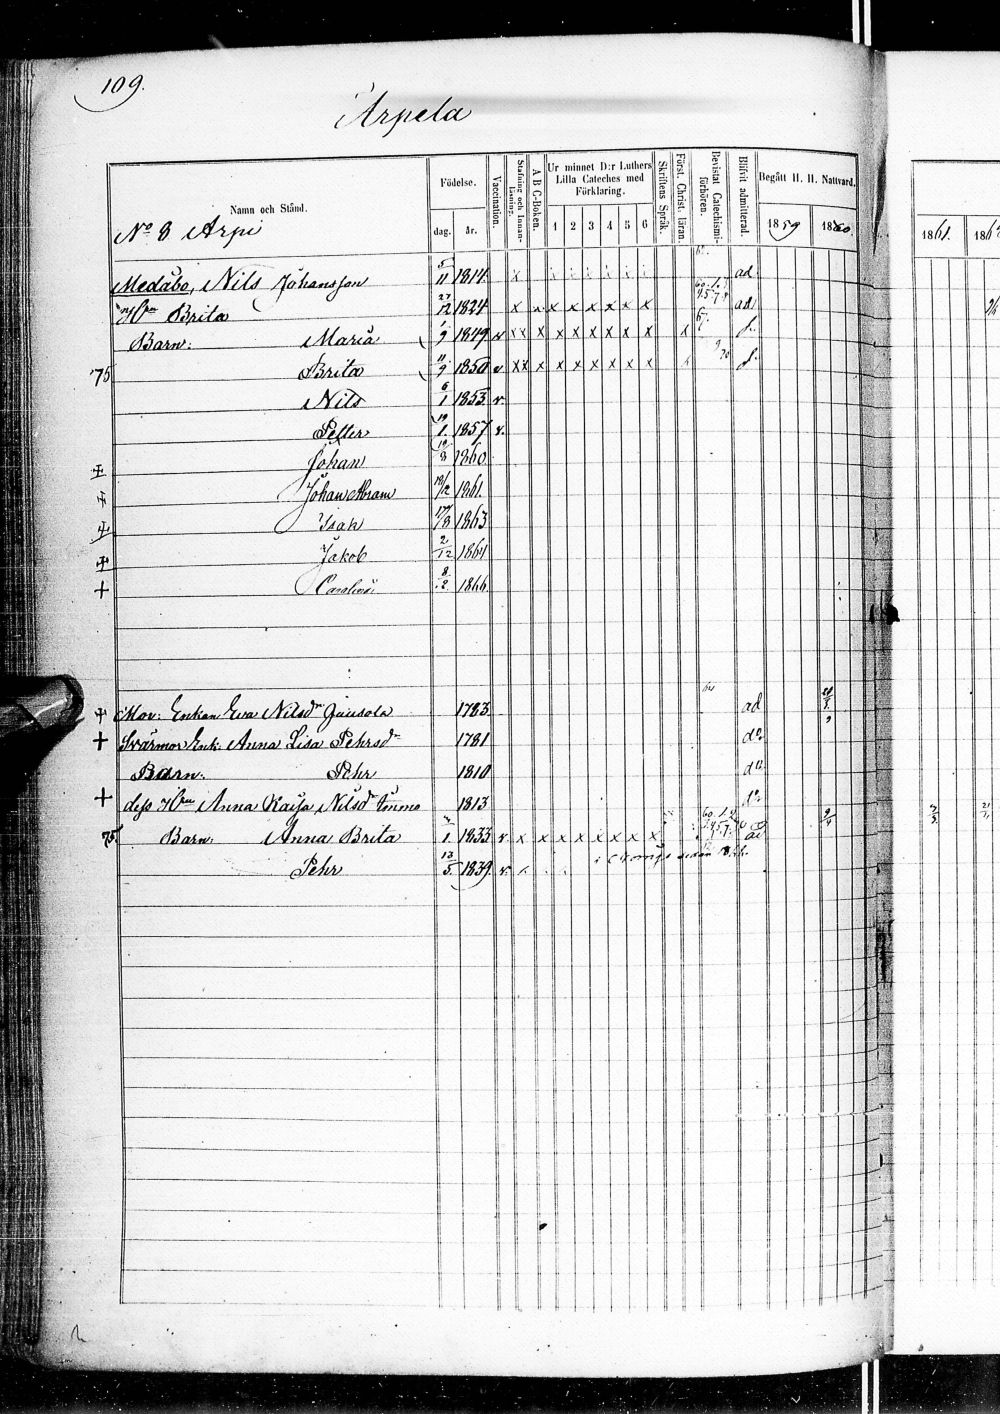 109.
Arpela
Namn och Stånd.
Födelse.
dag. år.
Vaccination.
Stafning och Innan-läsning.
A B C-Boken.
Ur minnet D:r Luthers Lilla Cateches med Förklaring.
1 2 3 4 5 6
Skriftens Språk.
Först. Christ. läran.
Bevistat Catechismi-förhören.
Blifvit admitterad.
Begått H. H. Nattvard.
1859 1860.
1861.
No 8 Arpi
Medåbo, Nils Johansson 5/11 1814. x ad
Hu Brita 27/12 1824 x x x x x x x x x ad
Barn: Maria 1/9 1849 v x x x x x x x x x x
75 Brita 11/9 1850 v x x x x x x x x x
Nils 6/1 1853 v.
Petter 19/1 1857 v.
Johan 19/8 1860
Johan Abram 18/12 1861.
Isak 17/8 1863
Jakob 2/12 1864
+ Carolina 8/2 1866
Mor: Enkan Eva Nilsdr 1783. ad
+ Svärmor Enk. Anna Lisa Pehrsdr 1781 do
Barn: Pehr 1810 do
+ dess Hu Anna Kajsa Nilsdr 1813 do
75. Barn: Anna Brita 1. 1833 v. x x x x x x x x ad
Pehr 13/5 1839. v.